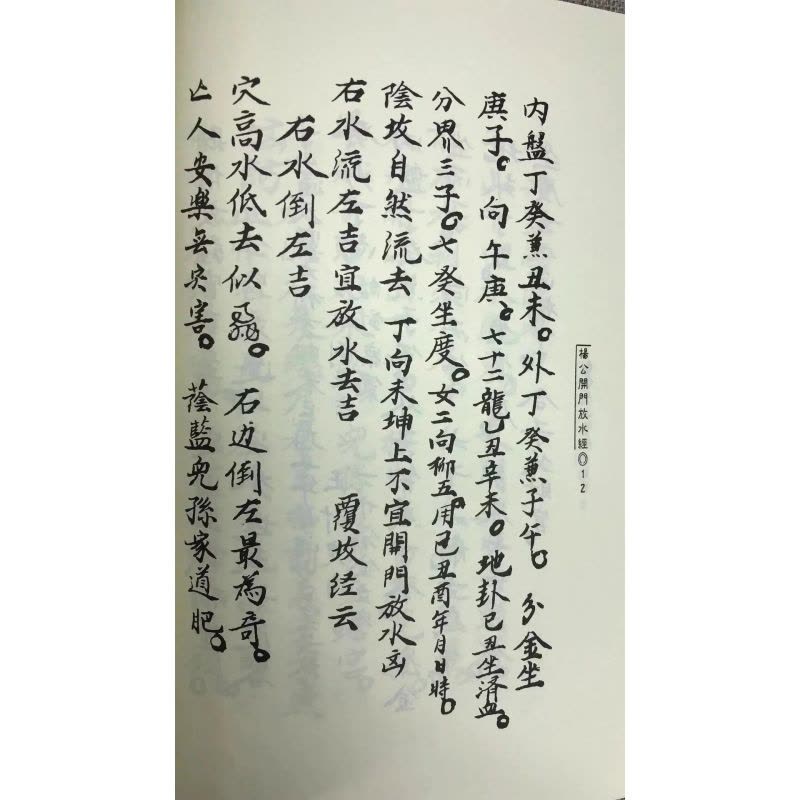 楊公開門放水經◎12
內盤丁癸兼丑未。外丁癸兼子午。分金坐
庚子。向午庚。七十二龍乙丑辛未。地卦已丑坐濟血。
分界三子。七癸坐度。女二向柳五。用已丑酉年月日時。
陰坟自然流去 丁向未坤上不宜開門放水凶
右水流左吉宜放水去吉 覆坟经云
右水倒左吉
穴高水低去似 。右边倒左最為奇。
亡人安樂無灾害。 蔭藍兒孫家道肥。